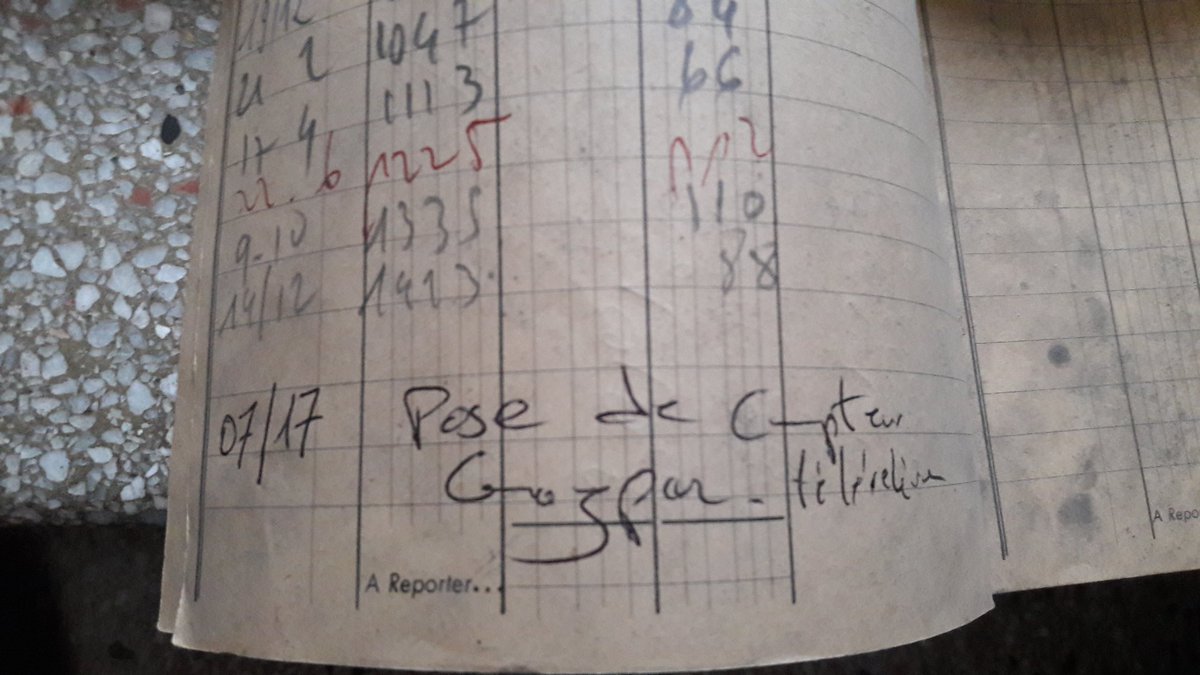 19/12 1047 64
21 2 1113 66
17 4 1225 112
22.6
9.10 1335 110
14/12 1423 88
07/17 Pose de Compteur
Gazpar. télérelève
A Reporter...
A Repo